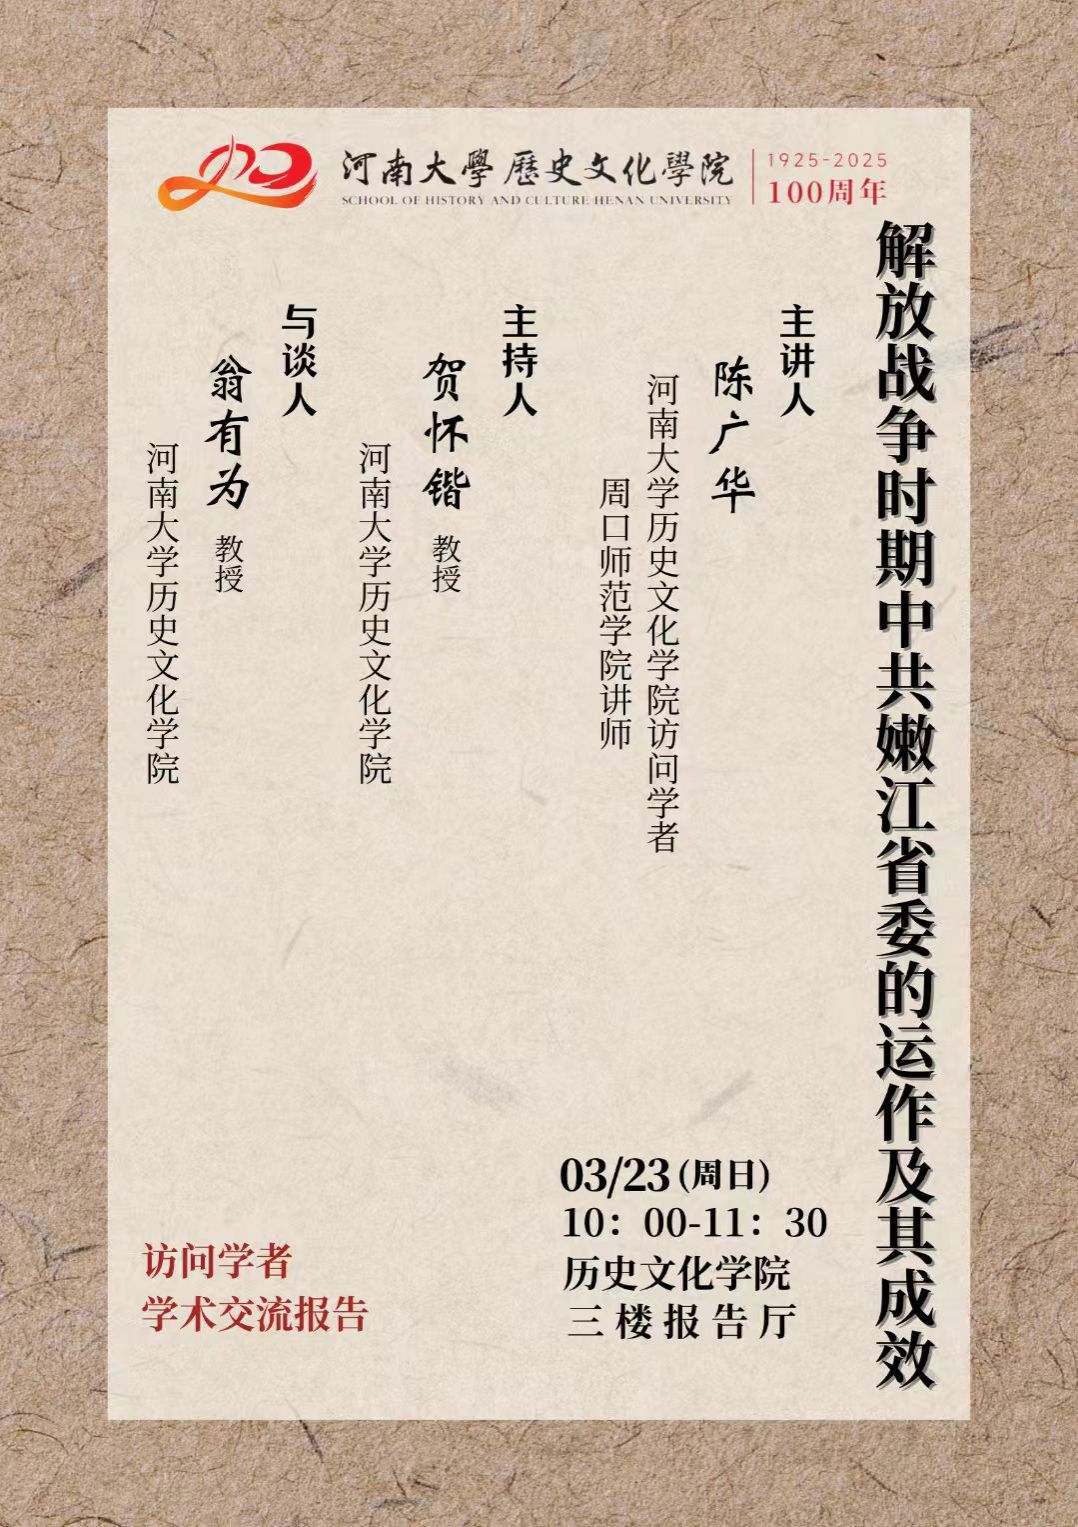 河南大學歷史文化學院
SCHOOL OF HISTORY AND CULTURE HENAN UNIVERSITY
1925-2025
100周年
解放战争时期中共嫩江省委的运作及其成效
主讲人
陈广华
河南大学历史文化学院访问学者
周口师范学院讲师
主持人
贺怀锴 教授
河南大学历史文化学院
与谈人
翁有为 教授
河南大学历史文化学院
03/23(周日)
10：00-11：30
历史文化学院
三楼报告厅
访问学者
学术交流报告